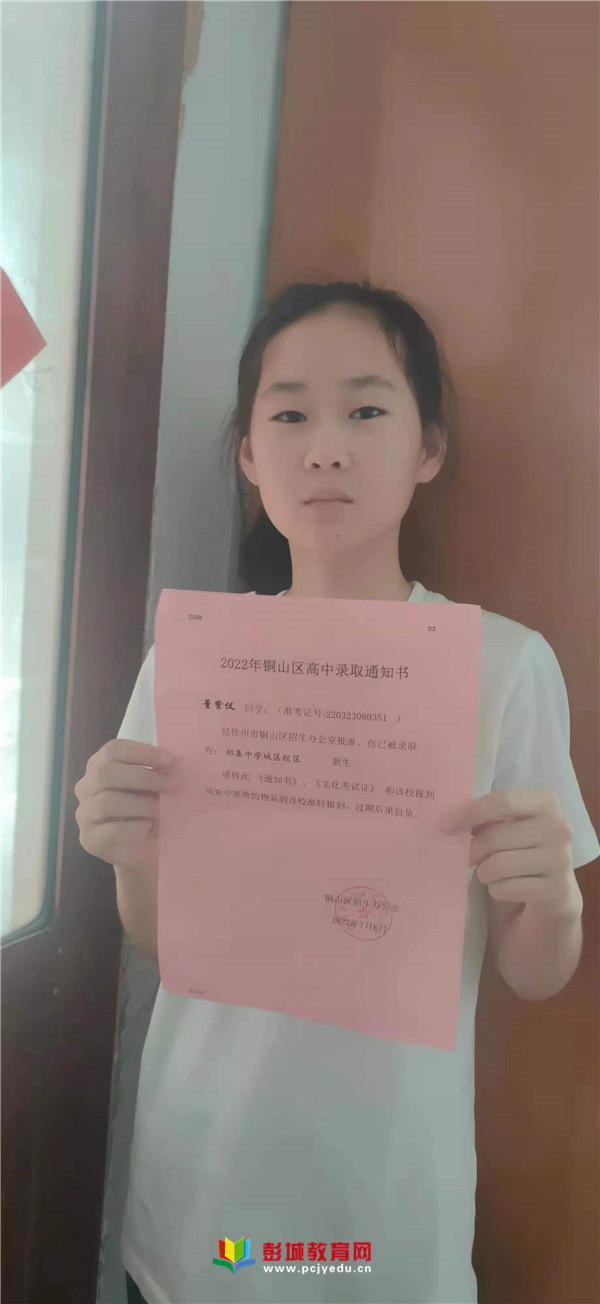 2208
03
2022年铜山区高中录取通知书
董紫仪 同学:(准考证号:220323080351 )
经徐州市铜山区招生办公室批准,你已被录取
为:郑集中学城区校区 新生
请持此《通知书》、《文化考试证》和该校报到
须知中要带的物品到该校准时报到,过期后果自负。
铜山区招生办公室
2022年7月6日
彭城教育网
www.pcjyedu.cn